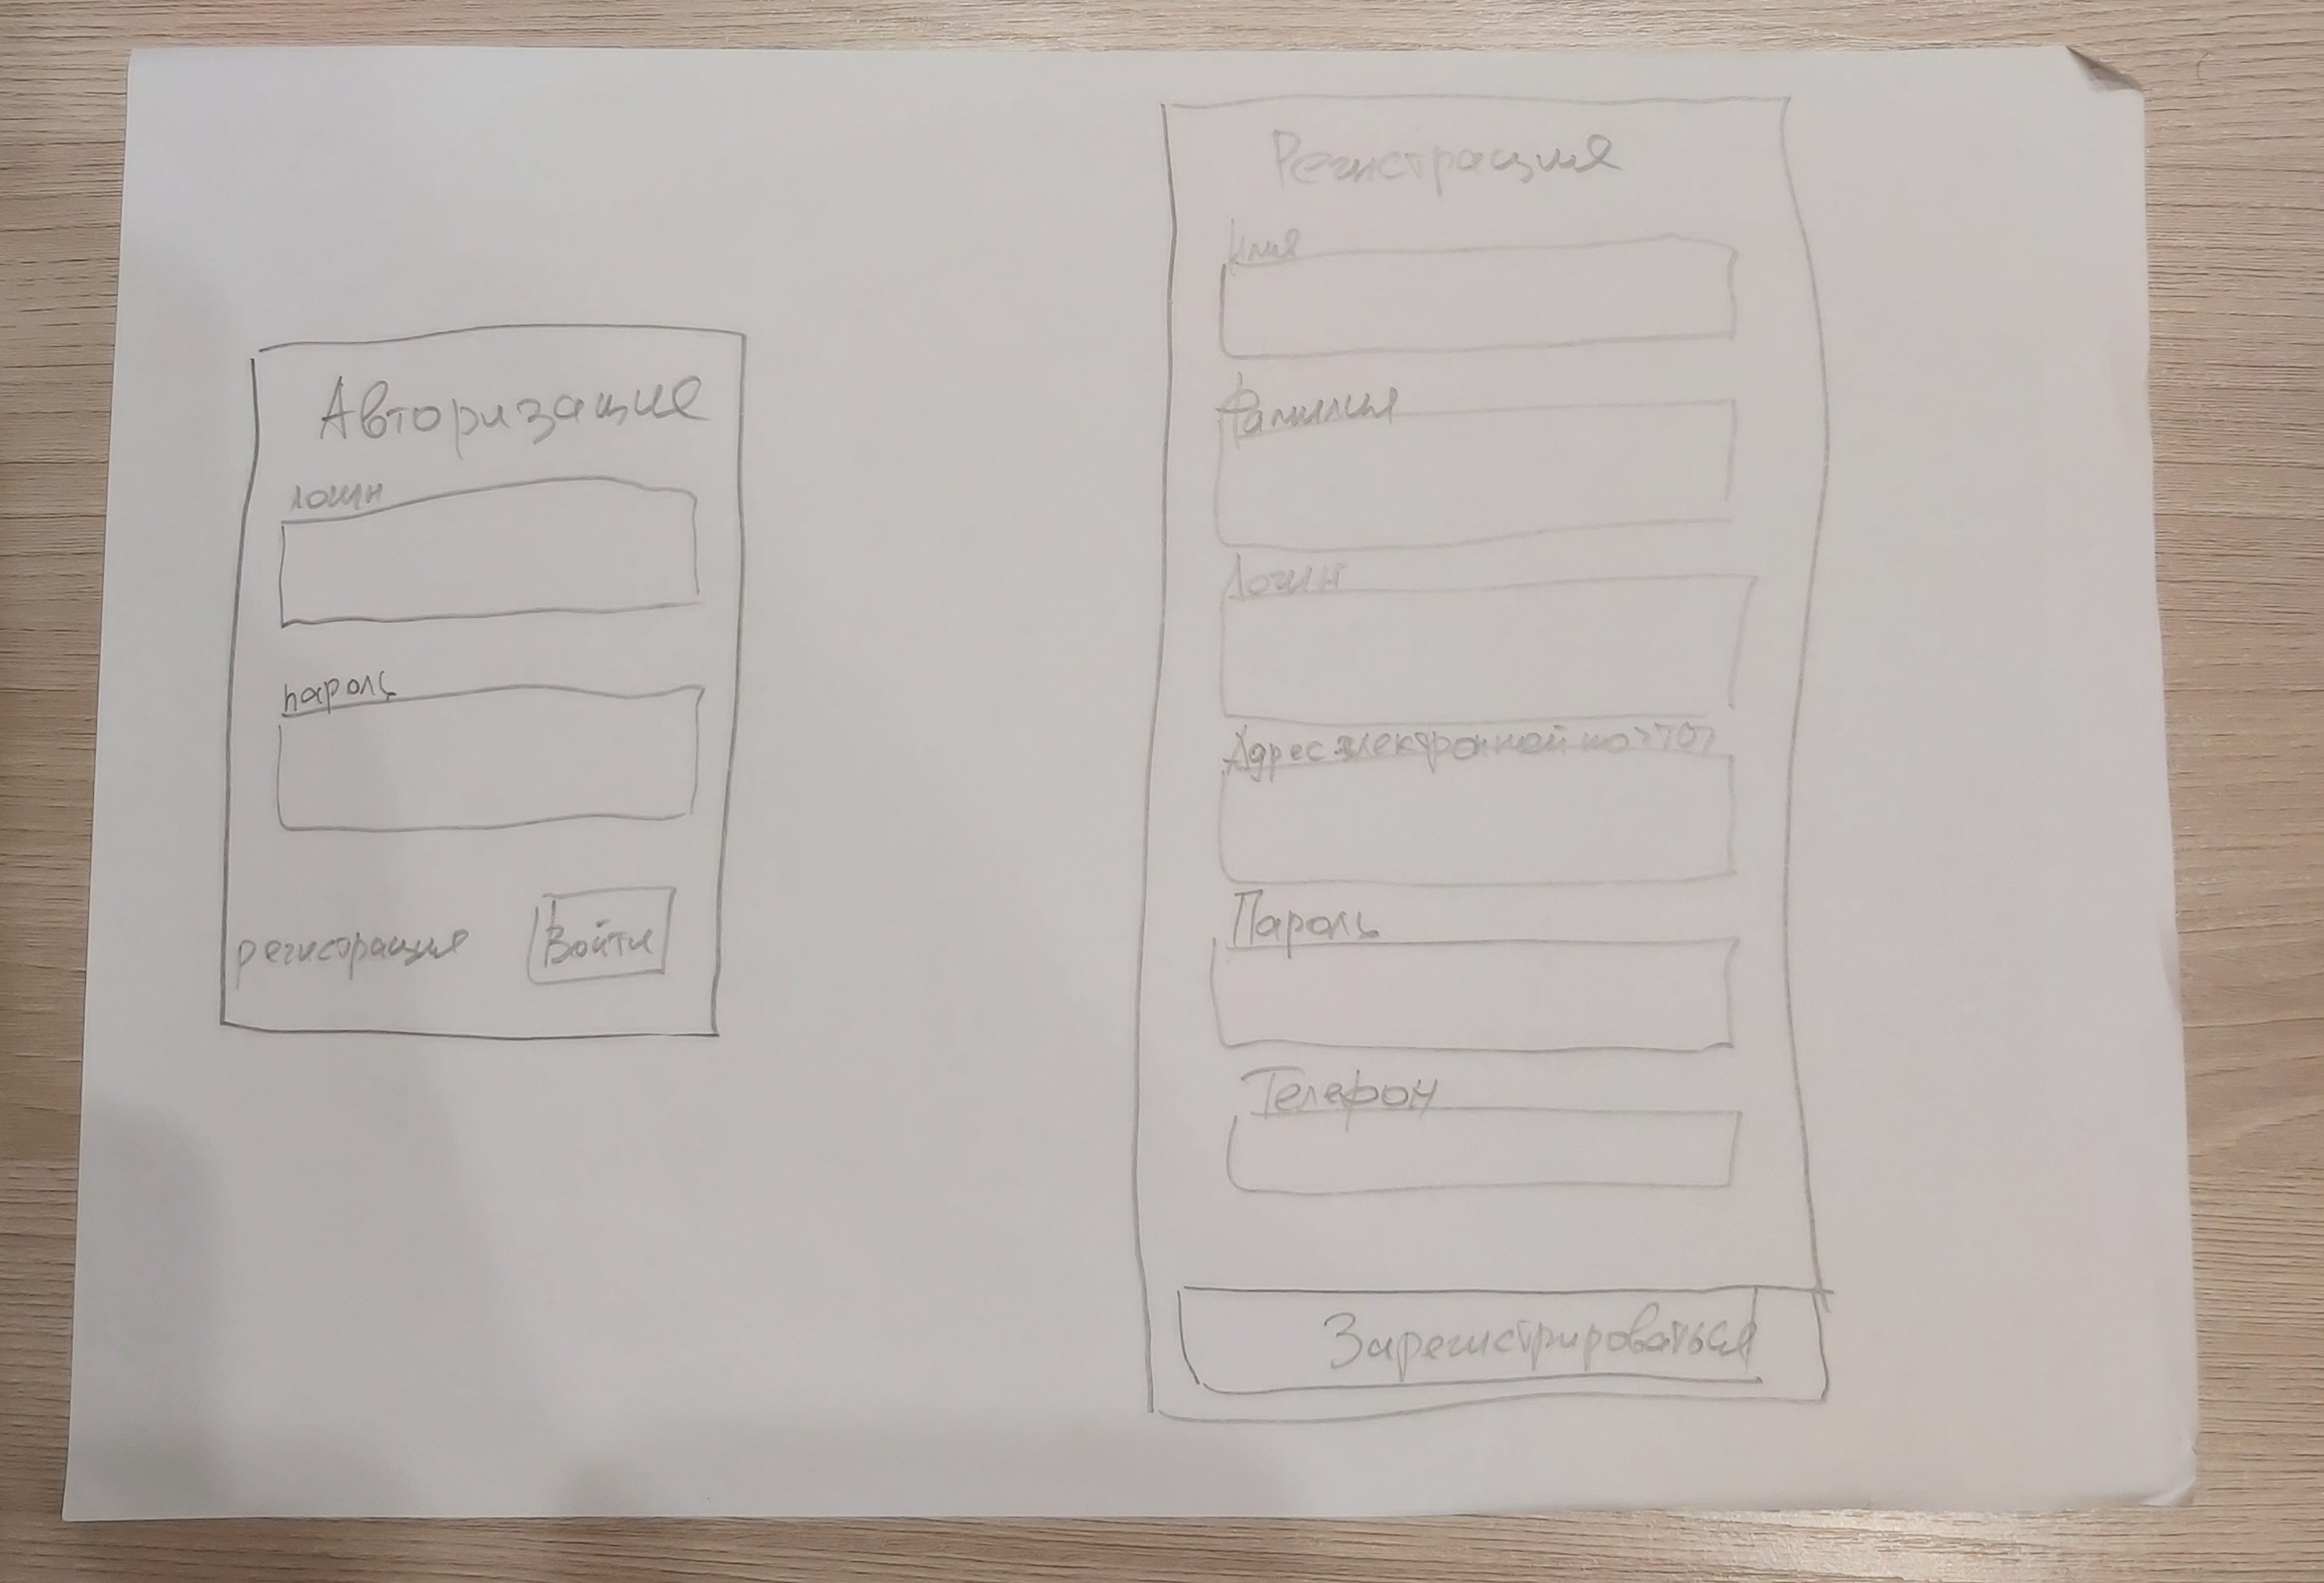 Авторизация
логин
пароль
регистрация
Войти
Регистрация
Имя
Фамилия
Логин
Адрес электронной почты
Пароль
Телефон
Зарегистрироваться